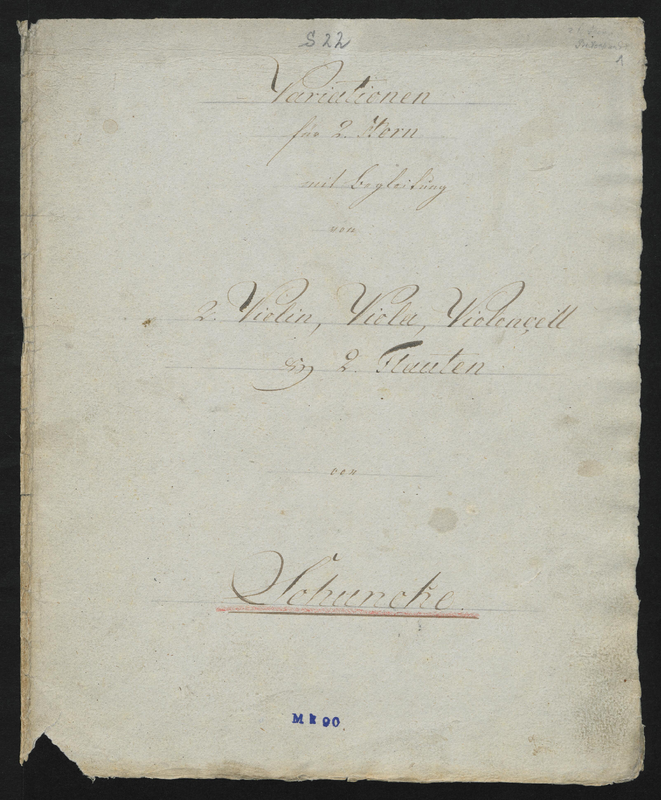 S 22
1
Variationen
für 2. Horn
mit begleitung
von
2. Violin, Viola, Violoncell
2. Flauten
von
Schuncke.
M k 90